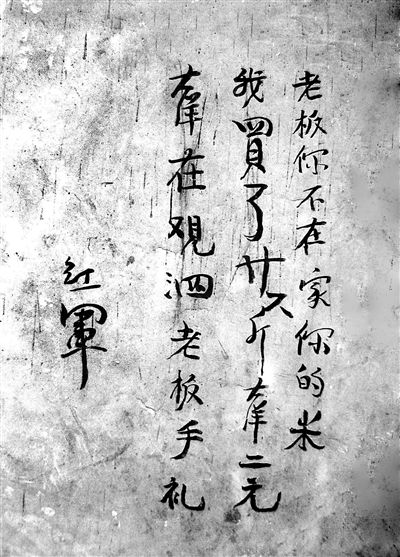 老板你不在家你的米
我買了廿六斤大洋二元
大洋在覌泗老板手礼
红軍